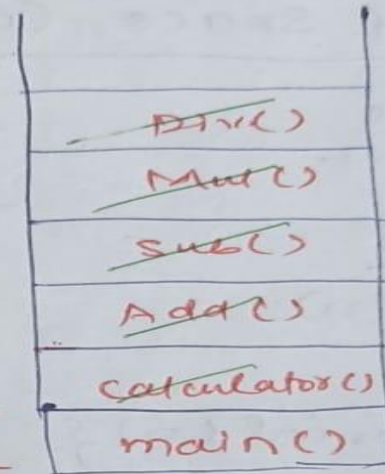 Div()
Mul()
Sub()
Add()
Calculator()
main()